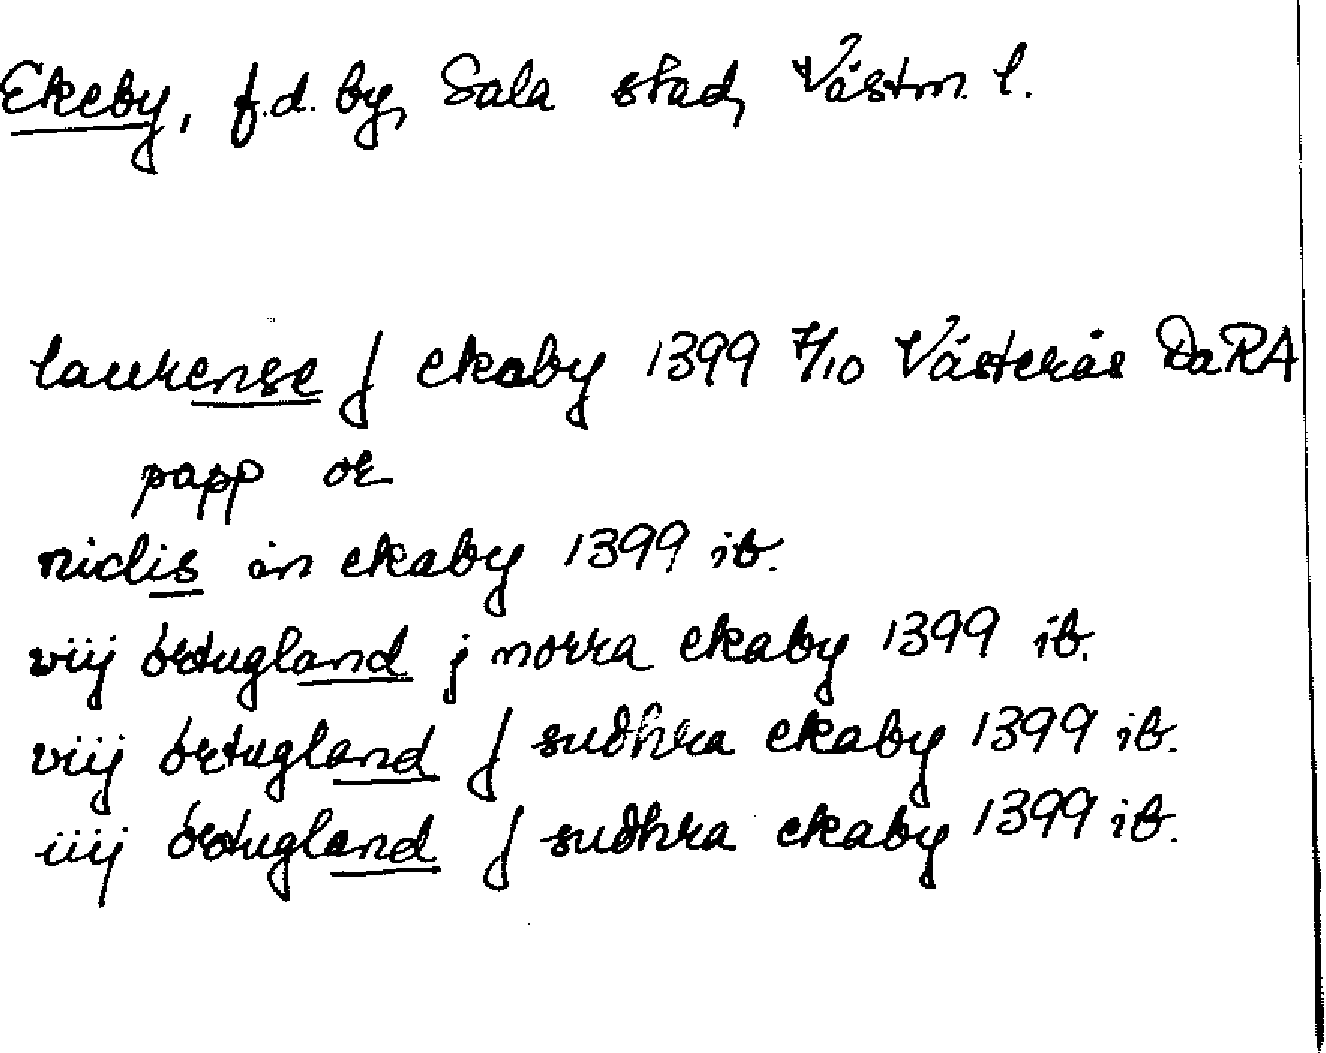 Ekeby, f.d. by, Sala stad, Västm. l.
laurense j ekaby 1399 7/10 Västerås DaRA
papp or
niclis in ekaby 1399 ib.
viij örtugland j norra ekaby 1399 ib.
viij örtugland j sudhra ekaby 1399 ib.
iiij örtugland j sudhra ekaby 1399 ib.